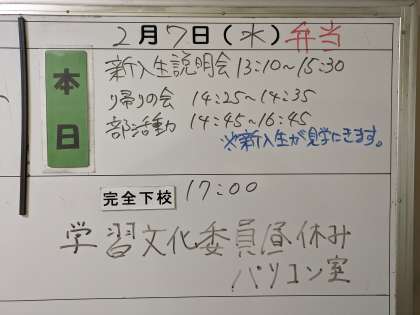 2月7日(水)弁当
本日
新入生説明会 13:10～15:30
帰りの会 14:25～14:35
部活動 14:45～16:45
※新入生が見学にきます。
完全下校 17:00
学習文化委員昼休み
パソコン室